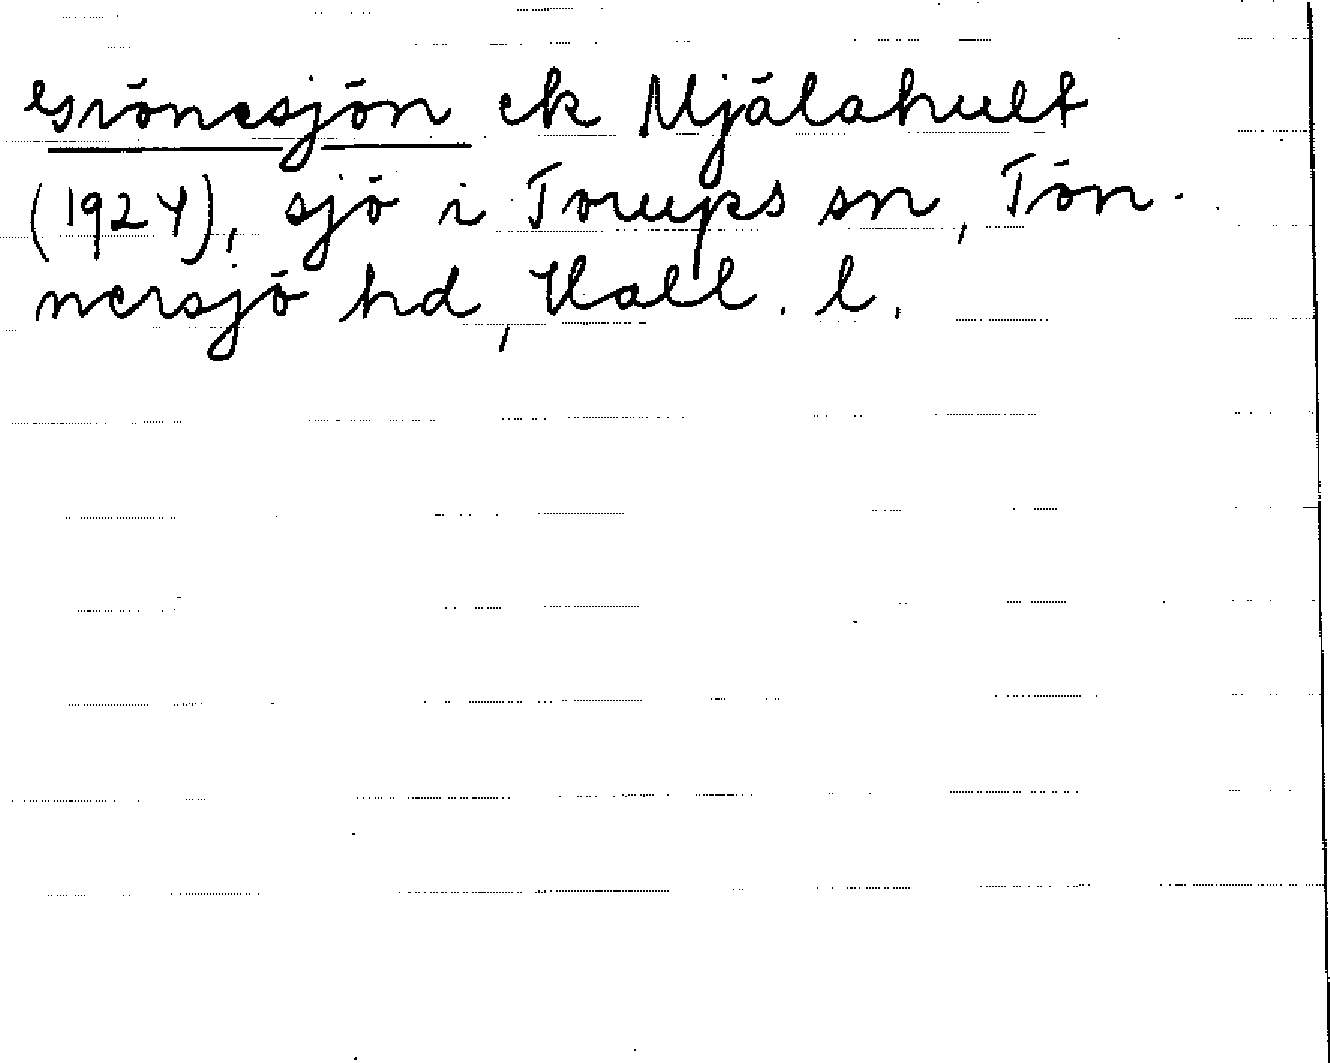 Grönesjön ek Mjälahult
(1924), sjö i Torups sn, Tön-
nersjö hd, Hall. l.